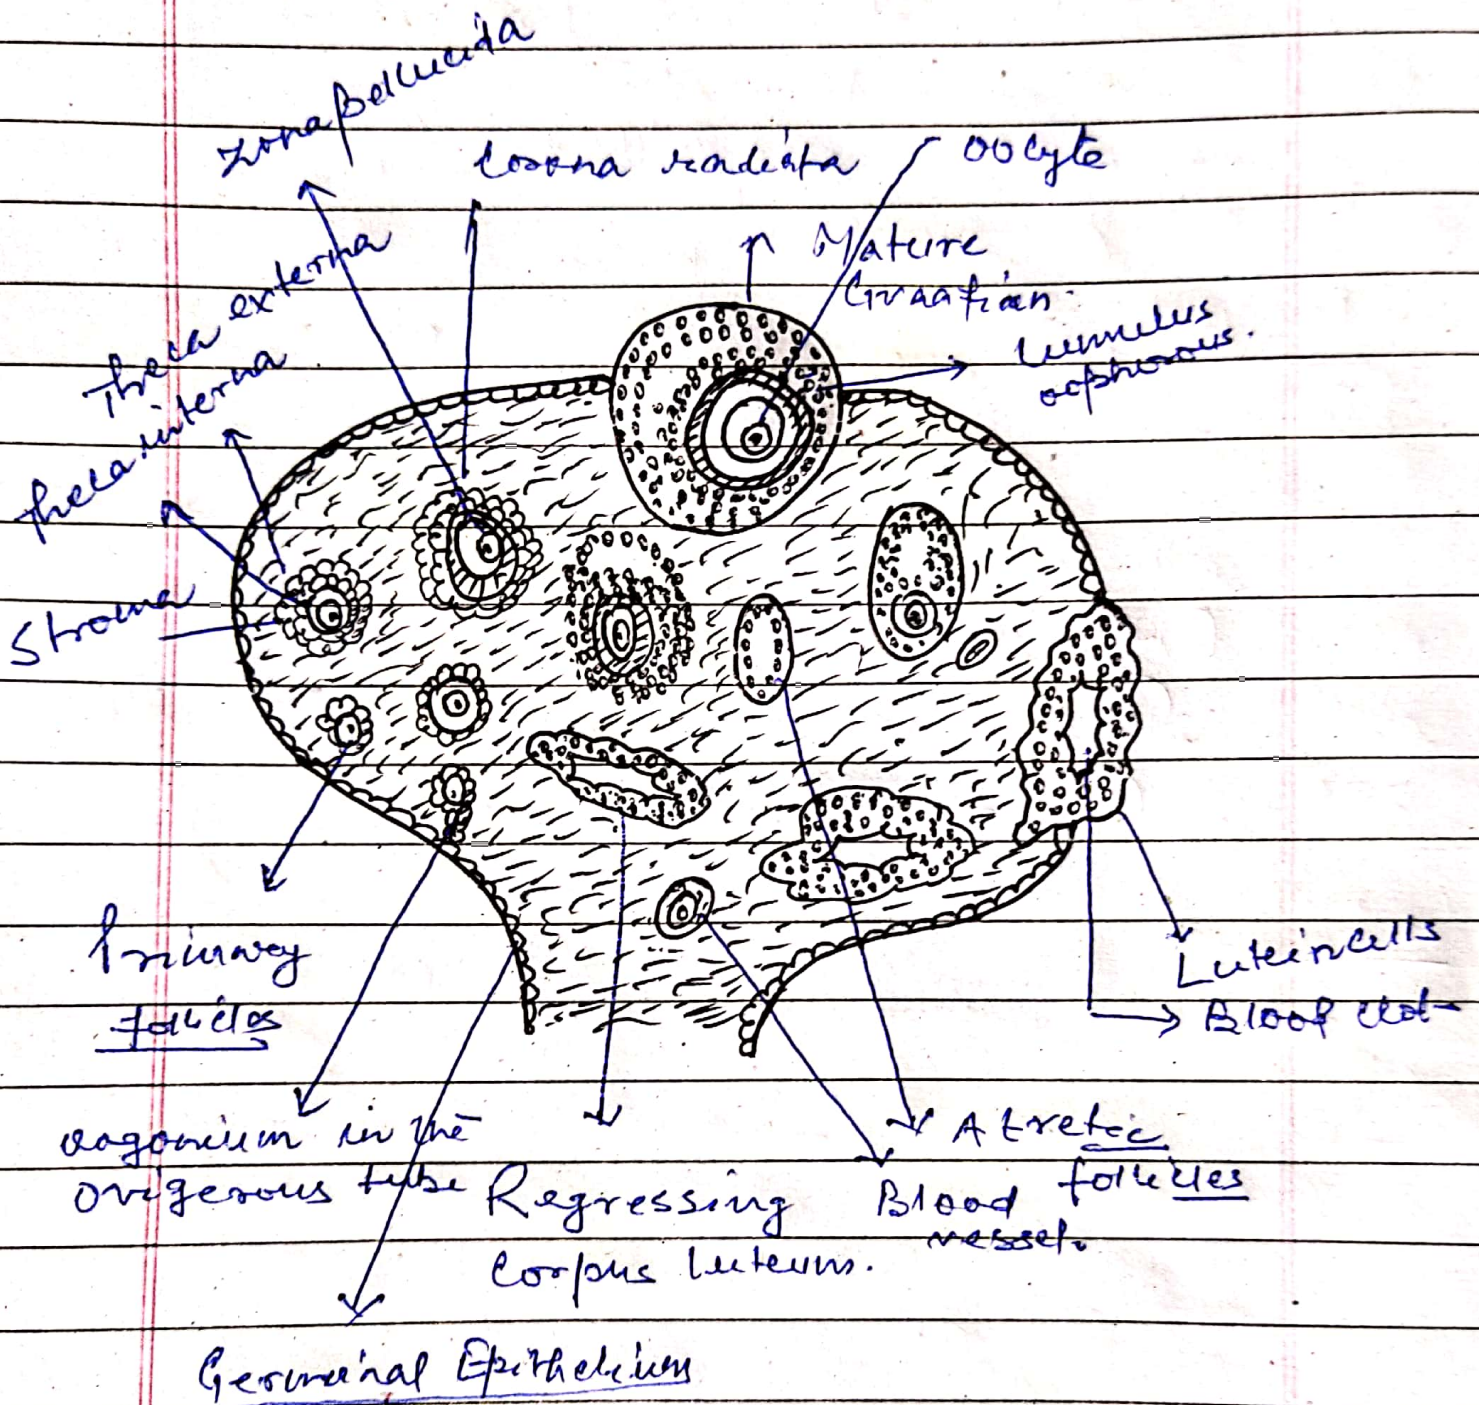 Zona pellucida
Corona radiata
oocyte
Mature
Graafian.
Cumulus
oophorous.
Theca externa
Theca interna
Stroma
Primary
follicles
Lutein cells
Blood clot
oogonium in the
ovigerous tube
Regressing
Corpus luteum.
Atretic
follicles
Blood
vessel.
Germinal Epithelium